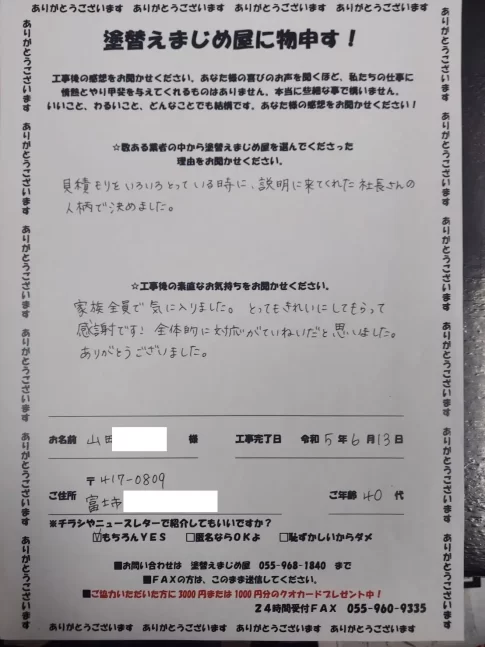 ありがとうございます ありがとうございます ありがとうございます ありがとうございます
塗替えまじめ屋に物申す！
工事後の感想をお聞かせください。あなた様の喜びのお声を聞くほど、私たちの仕事に
情熱とやり甲斐を与えてくれるものはありません。本当に些細な事で構いません。
いいこと、わるいこと、どんなことでも結構です。あなた様の感想をお聞かせください！
☆数ある業者の中から塗替えまじめ屋を選んでくださった
理由をお聞かせください。
見積もりをいろいろとっている時に、説明に来てくれた社長さんの
人柄で決めました。
☆工事後の素直なお気持ちをお聞かせください。
家族全員で気に入りました。とってもきれいにしてもらって
感謝です！全体的に対応がていねいだと思いました。
ありがとうございました。
お名前 山田 様 工事完了日 令和 5年 6月 13日
〒417-0809
ご住所 富士市 ご年齢 40 代
※チラシやニュースレターで紹介してもいいですか？
☑もちろんＹＥＳ □匿名ならＯＫよ □恥ずかしいからダメ
■お問い合わせは 塗替えまじめ屋 055-968-1840 まで
■ＦＡＸの方は、このまま送信してください。
■ご協力いただいた方に3000円または1000円分のクオカードプレゼント中！
２４時間受付ＦＡＸ 055-960-9335
ありがとうございます ありがとうございます ありがとうございます ありがとうございます
ありがとうございます ありがとうございます ありがとうございます ありがとうございます ありがとうございます ありがとうございます
ありがとうございます ありがとうございます ありがとうございます ありがとうございます ありがとうございます ありがとうございます